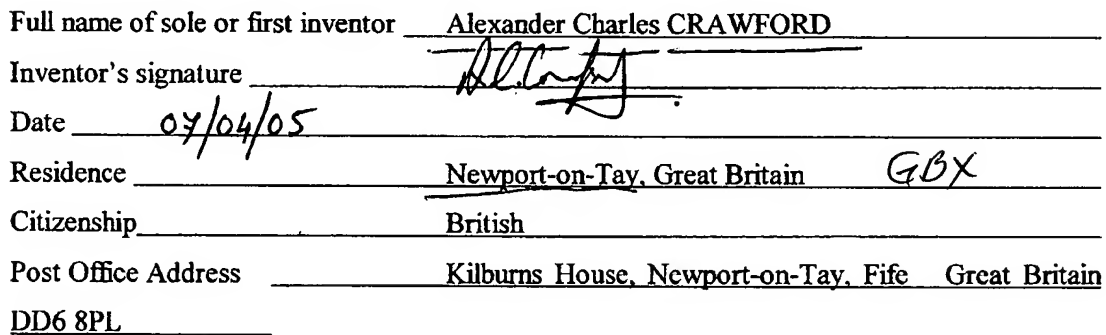 Full name of sole or first inventor Alexander Charles CRAWFORD
Inventor's signature A.C. Crawford
Date 07/04/05
Residence Newport-on-Tay, Great Britain GBX
Citizenship British
Post Office Address Kilburns House, Newport-on-Tay, Fife Great Britain
DD6 8PL